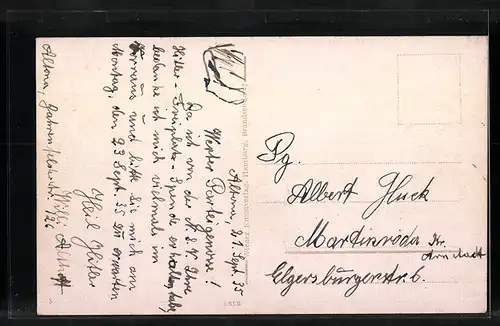 Altona, 21 Sept. 35
Werter Parteigenosse!
Da ich von der N.S.V. Ihre
Hitler-Freiplatz-Spende erhalten habe,
bedanke ich mich vielmals im
Voraus und bitte Sie mich am
Montag, den 23 Sept 35 zu erwarten
Heil Hitler
Willi
Altona, Bahrenfelderstr. 126
Pg.
Albert Gluck
Martinroda Kr.
Arnstadt
Elgersburgerstr. 6.